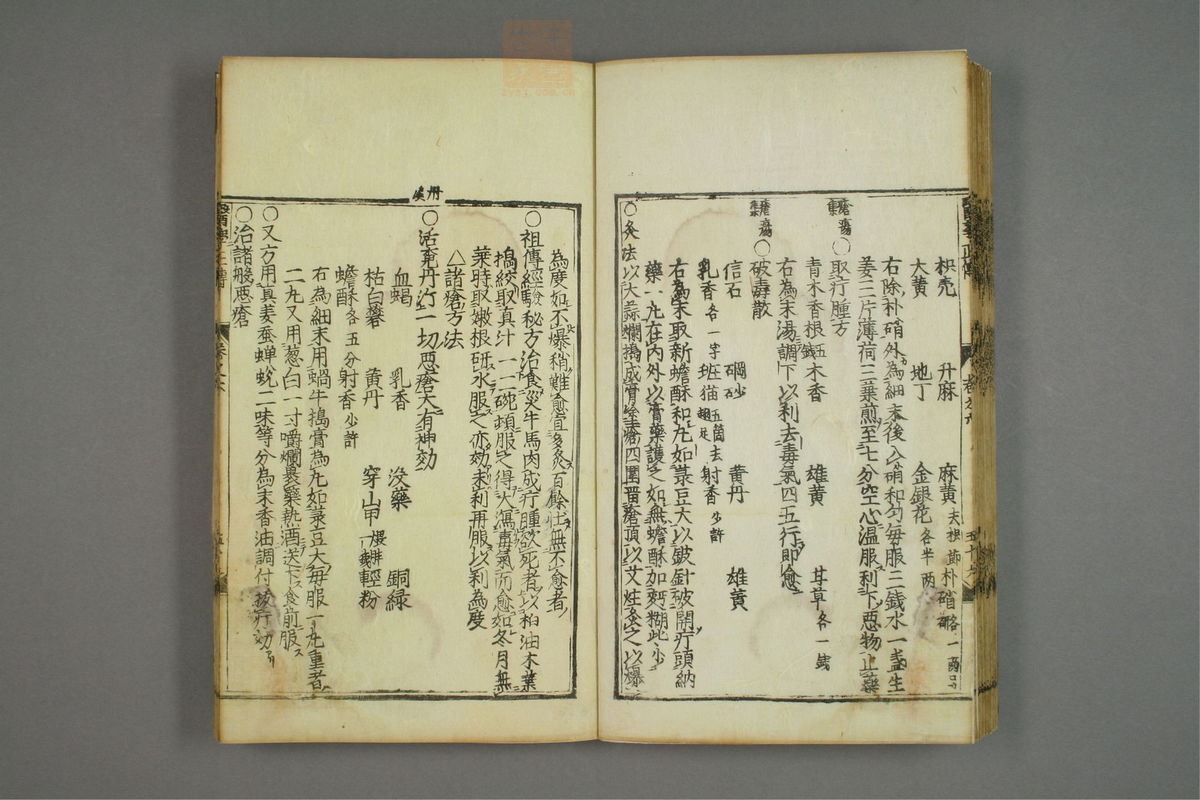 枳壳 升麻 麻黄 去根節 朴硝 各一両
大黄 地丁 金銀花 各半両
右除朴硝外為細末後入硝和匀毎服三銭水一盞生
姜三片薄荷三葉煎至七分空心温服利下悪物止薬
瘡瘍集 〇取疔腫方
青木香根 五銭 木香 雄黄 甘草 各一銭
右為末湯調下以利去毒氣四五行即愈
瘡瘍集 〇破毒散
信石 硇砂 黄丹 雄黄
乳香 各一字 班猫 五箇去翅足 射香 少許
右為末取新蟾酥和丸如菉豆大以鈹針破開疔頭納
藥一丸在内外以膏藥護之如無蟾酥加麪糊此少
〇灸法以大蒜爛搗成膏塗瘡四圍畱瘡頂以艾炷灸之以爆
為度如不爆稍難愈宜多灸百餘壮無不愈者
〇祖傳經驗秘方治食災牛馬肉成疔腫欲死者以柏油木葉
搗絞取真汁一二碗頓服之得大瀉毒氣而愈如冬月無
葉時取嫩根砥水服之亦効未利再服以利為度
△諸瘡方法
丹溪 〇活竜丹治一切悪瘡大有神効
血蝎 乳香 没藥 銅緑
枯白礬 黄丹 穿山甲 煨 一銭 輕粉
蟾酥 各五分 射香 少許
右為細末用蝸牛搗膏為丸如菉豆大毎服一丸重者
二丸又用葱白一寸嚼爛裹藥熱酒送下食前服
〇又方用真姜蚕蝉蛻二味等分為末香油調付拔疔効
〇治諸般悪瘡